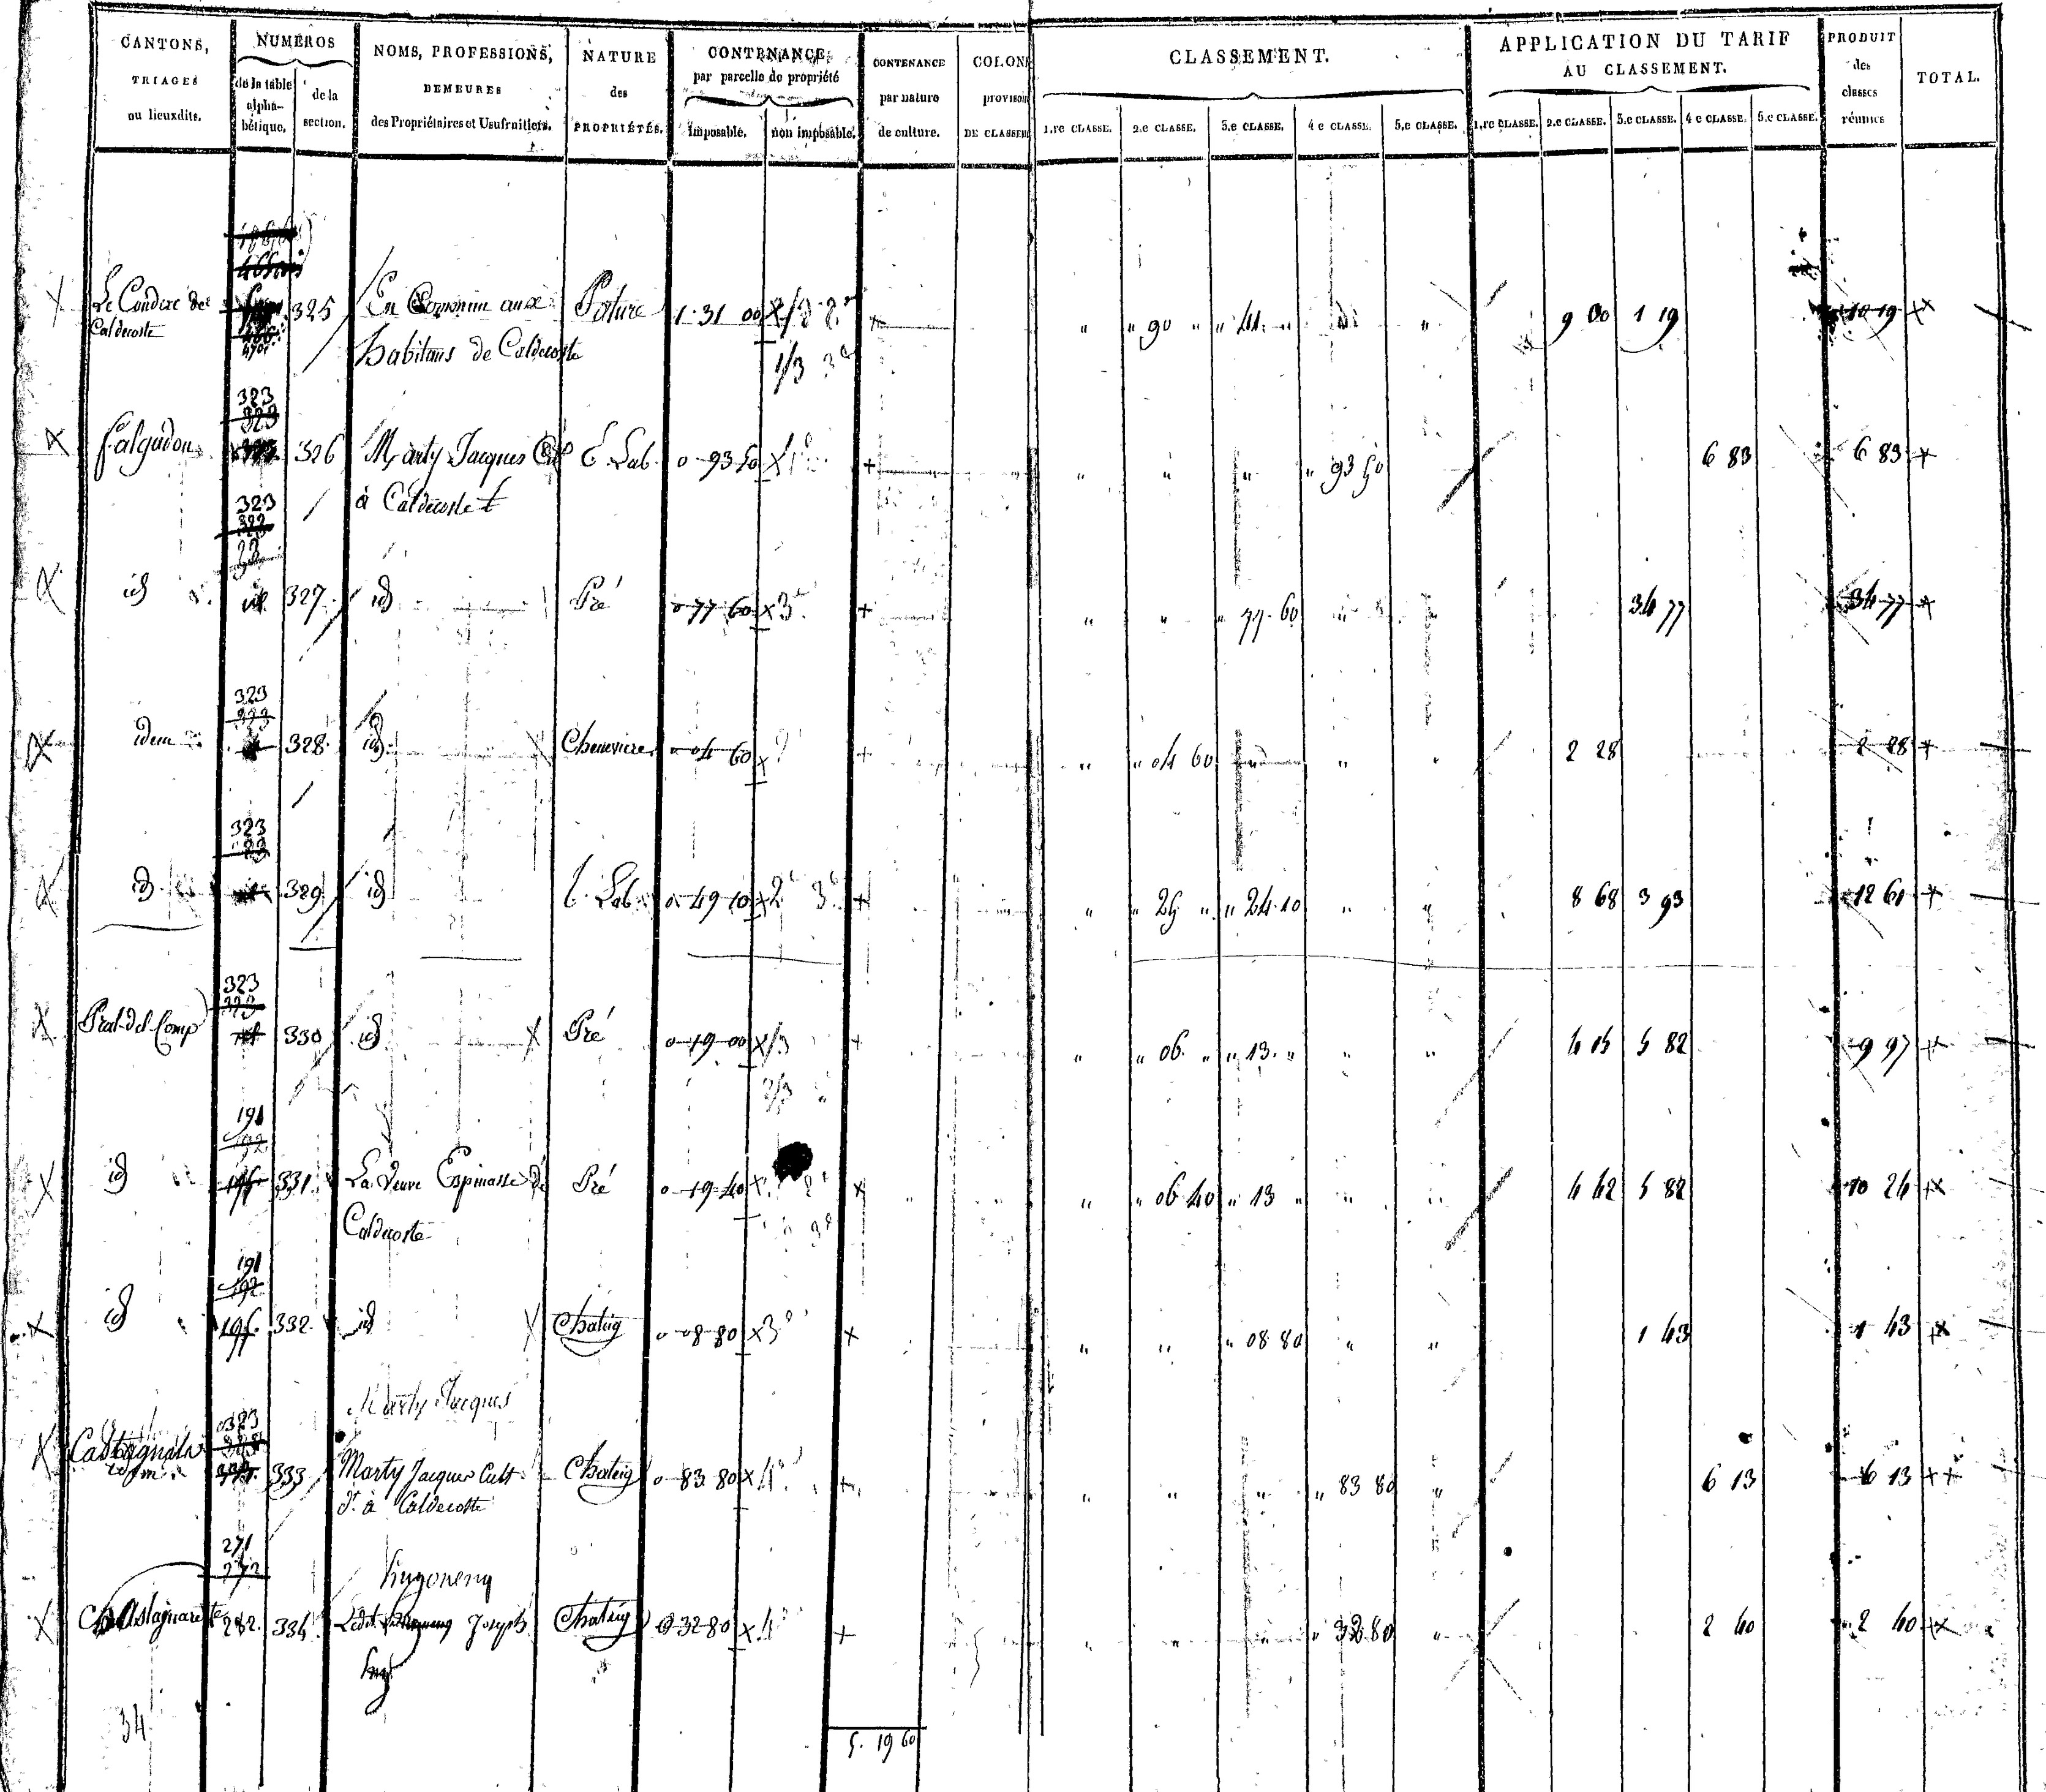 CANTONS, TRIAGES ou lieuxdits.
NUMÉROS de la table alphabétique. de la section.
NOMS, PROFESSIONS, DEMEURES des Propriétaires et Usufruitiers.
NATURE des PROPRIÉTÉS.
CONTENANCE par parcelle de propriété imposable. non imposable.
CONTENANCE par nature de culture.
COLON provisoi DE CLASSEM
CLASSEMENT.
1.re CLASSE. 2.e CLASSE. 3.e CLASSE. 4 e CLASSE. 5.e CLASSE.
APPLICATION DU TARIF AU CLASSEMENT.
1.re CLASSE. 2.e CLASSE. 3.e CLASSE. 4 e CLASSE. 5.e CLASSE.
PRODUIT des classes réunies
TOTAL.
Le Condere de 325 En Commun aux Pature 1 31 00 X 2/3 2e + " " 90 " " 41 " " " 9 00 1 19 10 19
Caldecoste habitans de Caldecoste 1/3 3e
323
323
Falgadou 326 Marty Jacques Cult C. Lab. 0 93 50 X 4e + " " " " 93 50 6 83 6 83
323 à Caldecoste
323
id 327 id Pré 0 77 60 X 3e + " " " 77 60 " 34 77 34 77
323
323
idem 328 id Chenevière 0 04 60 X 2e + " " 04 60 " " " 2 28 2 28
323
id 329 id C. Lab. 0 49 10 X 2e 3e + " " 25 " " 24 10 " " 8 68 3 93 12 61
323
323
Prat del Comp 330 id Pré 0 19 00 X 1/3 + " " 06 " " 13 " " " 4 15 5 82 9 97
2/3
191
192
id 331 La Veuve Espinasse de Pré 0 19 40 X 2e + " " 06 40 " 13 " " " 4 42 5 82 10 24
Caldecoste 3e
191
192
id 332 id Chataig 0 08 80 X 3e + " " " 08 80 " " 1 43 1 43
Marty Jacques
323
Castagnals
idem 333 Marty Jacques Cult Chataig 0 83 80 X 4e + " " " " 83 80 " 6 13 6 13
dt. à Caldecoste
271
272 hugoneng
Castagnarette 282 334 Ledit Joseph Chataig 0 32 80 X 4e + " " " " 32 80 " 2 40 2 40
hug
34
5. 19 60